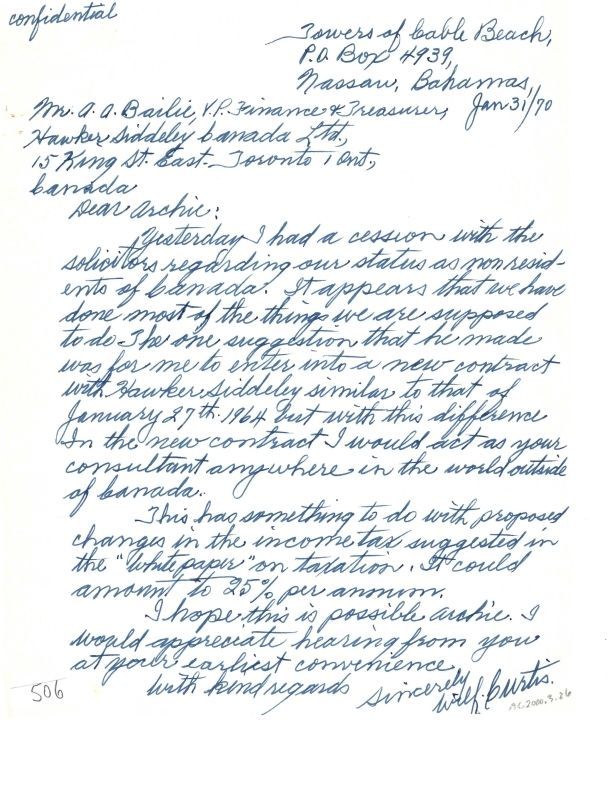 confidential
Towers of Cable Beach,
P.O. Box 4939,
Nassau, Bahamas,
Jan 31/70
Mr. A. A. Bailie, V.P. Finance & Treasurer,
Hawker Siddeley Canada Ltd.,
15 King St. East - Toronto 1 Ont.,
Canada
Dear Archie:
Yesterday I had a cession with the
solicitors regarding our status as nonresid-
ents of Canada. It appears that we have
done most of the things we are supposed
to do The one suggestion that he made
was for me to enter into a new contract
with Hawker Siddeley similar to that of
January 27th. 1964 but with this difference
In the new contract I would act as your
consultant anywhere in the world outside
of Canada.
This has something to do with proposed
changes in the income tax suggested in
the "White paper" on taxation. It could
amount to 25% per annum.
I hope this is possible Archie. I
would appreciate hearing from you
at your earliest convenience
With kind regards
Sincerely
Wilf. Curtis.
506
AC 2000.3.26